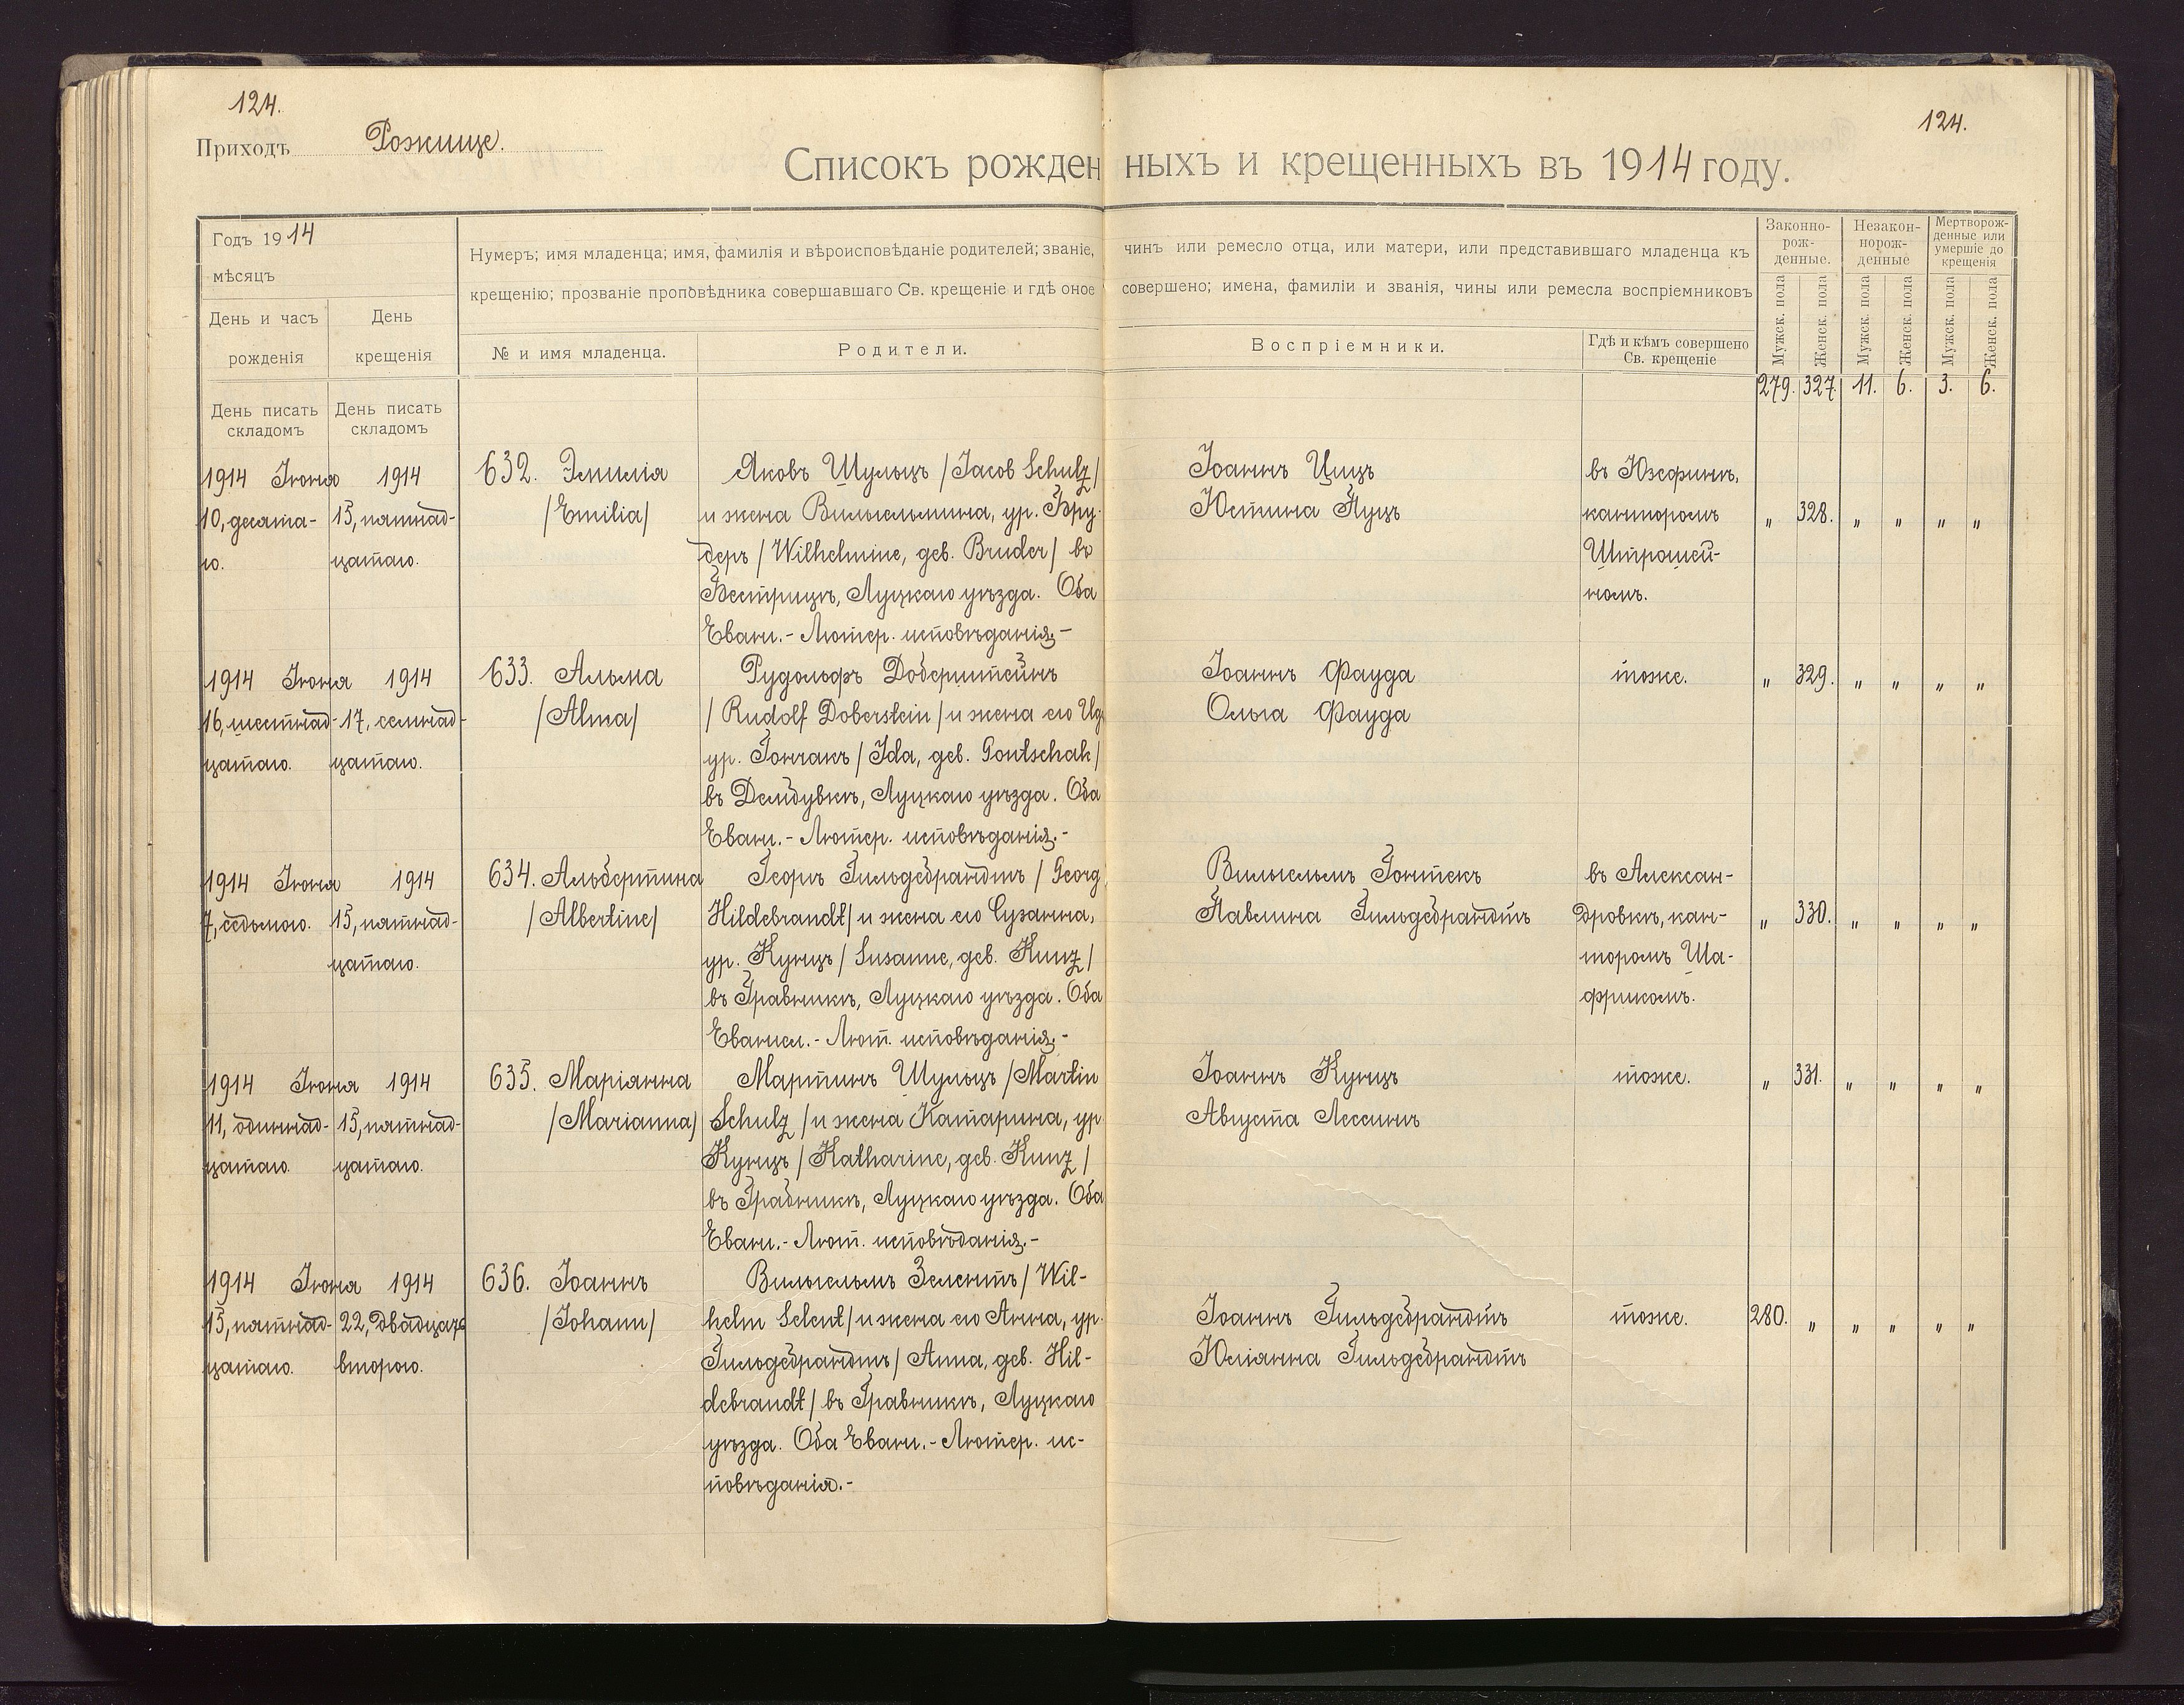 124.
124.
Приходъ Рожище.
Списокъ рожденныхъ и крещенныхъ въ 1914 году.
Годъ 1914
мѣсяцъ
День и часъ рожденія
День крещенія
Нумеръ; имя младенца; имя, фамилія и вѣроисповѣданіе родителей; званіе, чинъ или ремесло отца, или матери, или представившаго младенца къ
крещенію; прозваніе проповѣдника совершавшаго Св. крещеніе и гдѣ оное совершено; имена, фамиліи и званія, чины или ремесла воспріемниковъ
№ и имя младенца.
Родители.
Воспріемники.
Гдѣ и кѣмъ совершено
Св. крещеніе
Законно-
рож-
денные.
Незакон-
норож-
денные
Мертворож-
денные или
умершіе до
крещенія
Мужск. пола
Женск. пола
Мужск. пола
Женск. пола
Мужск. пола
Женск. пола
279. 327. 11. 6. 3. 6.
День писать
складомъ
День писать
складомъ
1914 Іюня
10, десята-
го.
1914
15, пятнад-
цатаго.
632. Эмилія
/Emilia/
Яковъ Шульцъ /Jacob Schulz/
и жена Вильгельмина, ур. Бру-
деръ /Wilhelmine, geb. Bruder/ въ
Бестрицѣ, Луцкаго уѣзда. Оба
Еванг.-Лютер. исповѣданія.-
Іоаннъ Цицъ
Юстина Пуцъ
въ Юзефинѣ,
канторомъ
Штрошей-
номъ.
„ 328. „ „ „ „
1914 Іюня
16, шестнад-
цатаго.
1914
17, семнад-
цатаго.
633. Альма
/Alma/
Рудольфъ Доберштейнъ
/Rudolf Doberstein/ и жена его Ида
ур. Гончакъ /Ida, geb. Gontschak/
въ Дембувкѣ, Луцкаго уѣзда. Оба
Еванг.-Лютер. исповѣданія.-
Іоаннъ Фауда
Ольга Фауда
тоже.
„ 329. „ „ „ „
1914 Іюня
7, седьмого.
1914
15, пятнад-
цатаго.
634. Альбертина
/Albertine/
Георгъ Гильдебрандтъ /Georg
Hildebrandt/ и жена его Сузанна,
ур. Кунцъ /Susanne, geb. Kunz/
въ Гравникѣ, Луцкаго уѣзда. Оба
Евангел.-Лют. исповѣданія.-
Вильгельмъ Гонтекъ
Павлина Гильдебрандтъ
въ Алексан-
дровкѣ, кан-
торомъ Ша-
фрикомъ.
„ 330. „ „ „ „
1914 Іюня
11, одиннад-
цатаго.
1914
15, пятнад-
цатаго.
635. Маріанна
/Marianna/
Мартинъ Шульцъ /Martin
Schulz/ и жена Катарина, ур
Кунцъ /Katharine, geb. Kunz/
въ Грабникѣ, Луцкаго уѣзда. Оба
Еванг.-Лют. исповѣданія.-
Іоаннъ Кунцъ
Августа Лессингъ
тоже.
„ 331. „ „ „ „
1914 Іюня
15, пятнад-
цатаго.
1914
22, двадцать
второго.
636. Іоаннъ
/Johann/
Вильгельмъ Зелентъ /Wil-
helm Selent/ и жена его Анна, ур.
Гильдебрандтъ /Anna, geb. Hil-
debrandt/ въ Гравникѣ, Луцкаго
уѣзда. Оба Еванг.-Лютер. ис-
повѣданія.-
Іоаннъ Гильдебрандтъ
Юліанна Гильдебрандтъ
тоже.
280. „ „ „ „ „